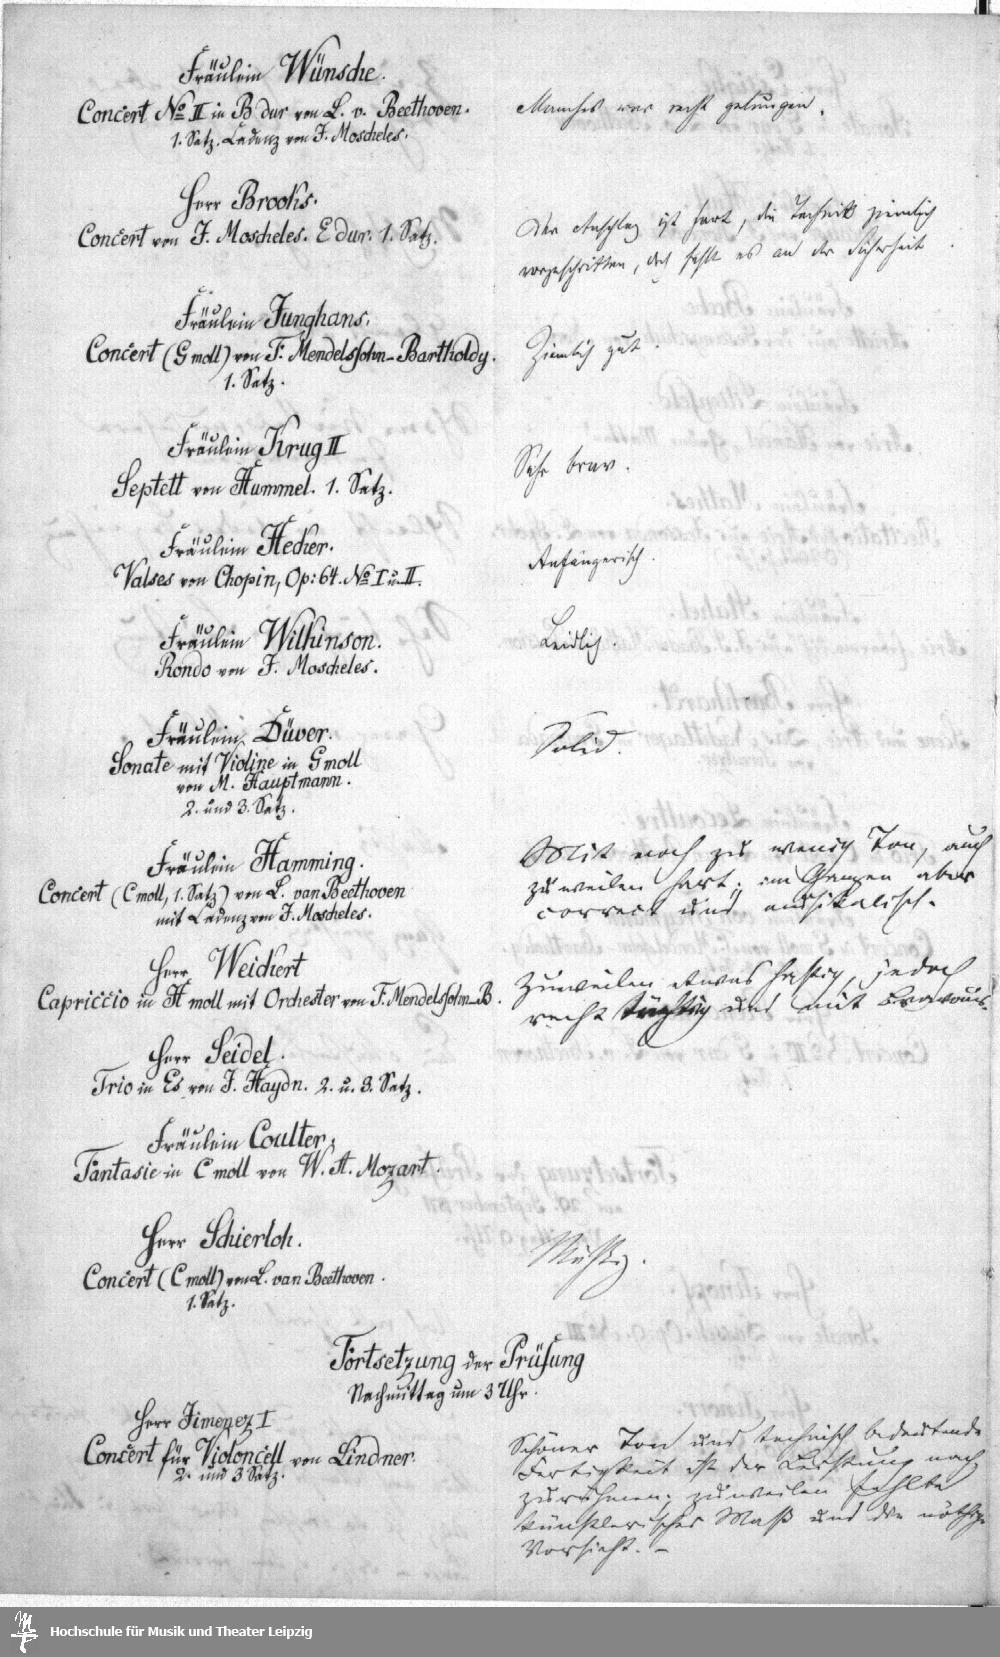 Fräulein Wünsche.
Concert No II in B dur von L. v. Beethoven.
1. Satz. Cadenz von J. Moscheles.
Manches war recht gelungen.
Herr Brooks.
Concert von J. Moscheles. E dur. 1. Satz.
Der Anschlag ist hart, die Technik ziemlich
vorgeschritten, doch fehlt es an der Sicherheit.
Fräulein Junghans.
Concert (G moll) von F. Mendelssohn-Bartholdy.
1. Satz.
Ziemlich gut.
Fräulein Krug II
Septett von Hummel. 1. Satz.
Sehr brav.
Fräulein Hecker.
Valses von Chopin, Op: 64. No I u. II.
Anfängerisch.
Fräulein Wilkinson.
Rondo von J. Moscheles.
Leidlich.
Fräulein Düver.
Sonate mit Violine in G moll
von M. Hauptmann.
2. und 3. Satz.
Solid.
Fräulein Hamming.
Concert (C moll, 1. Satz) von L. van Beethoven
mit Cadenz von J. Moscheles.
Mit noch zu wenig Ton, auch
zuweilen hart; im Ganzen aber
correct und musikalisch.
Herr Weickert
Capriccio in H moll mit Orchester von F. Mendelssohn-B.
Zuweilen etwas hastig, jedoch
recht tüchtig und mit Bravour.
Herr Seidel.
Trio in Es von J. Haydn. 2. u. 3. Satz.
Fräulein Coulter.
Fantasie in C moll von W. A. Mozart.
Herr Schierloh.
Concert (C moll) von L. van Beethoven.
1. Satz.
Fortsetzung der Prüfung
Nachmittag um 3 Uhr.
Herr Jimenez I
Concert für Violoncell von Lindner.
2. und 3 Satz.
Schöner Ton und technisch bedeutende
Fertigkeit ist der Leistung nach
zurühmen; zuweilen fehlte
künstlerisches Maß und die nöthige
Vorsicht. –
Hochschule für Musik und Theater Leipzig